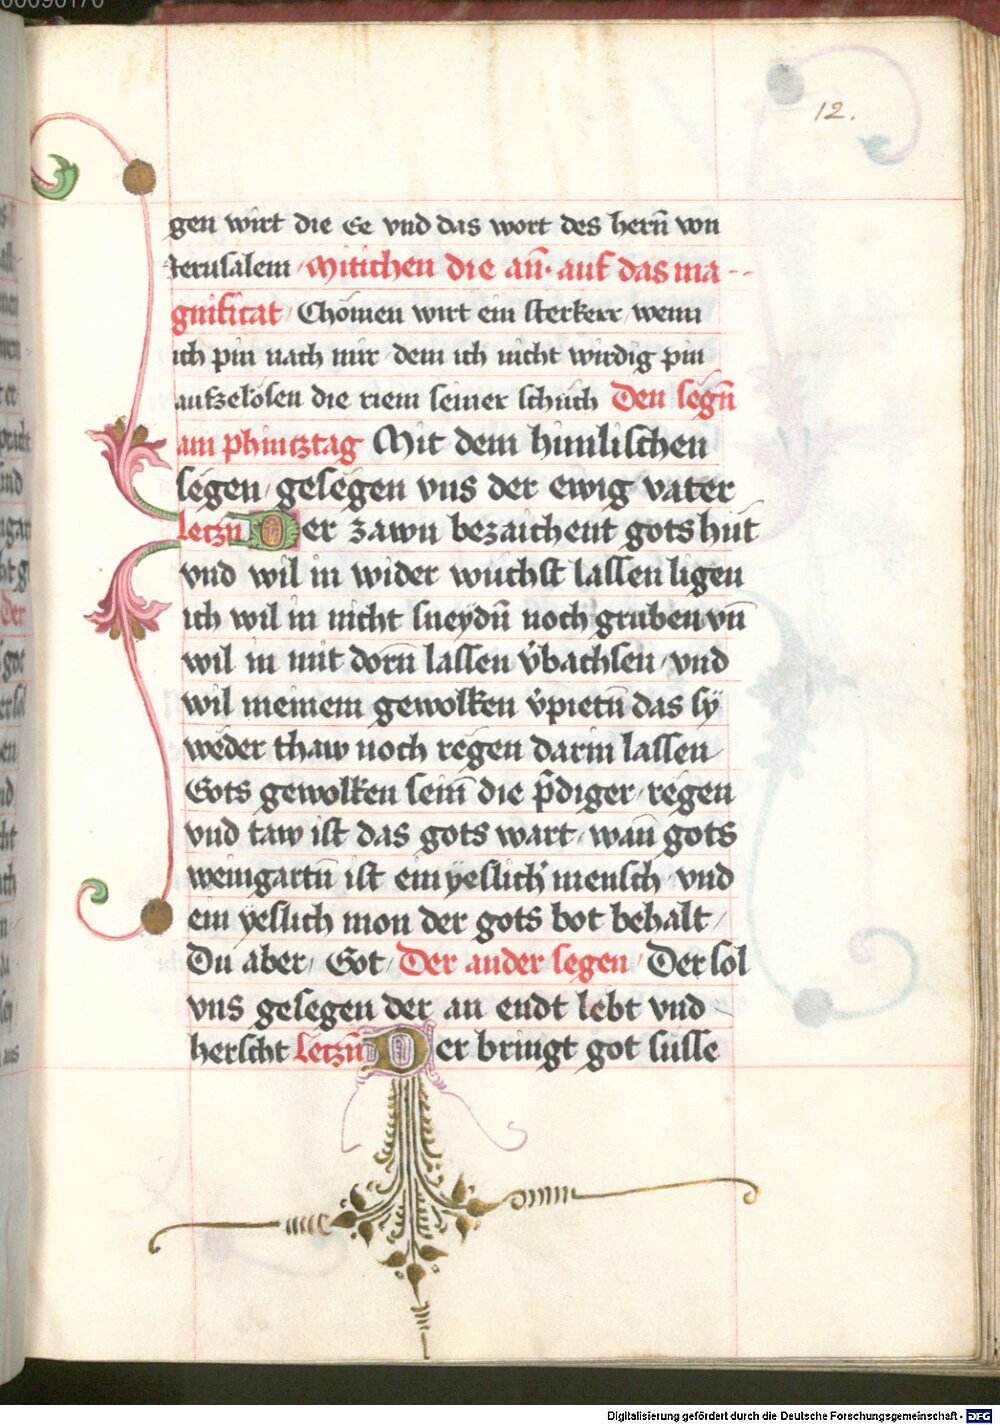 00090170
12.
gen wirt die Ee vnd das wort des hern̄ von
Jerusalem Mitichen die an̄. auf das ma-
gnificat Chömen wirt ein sterkerr wenn
ich pin nach mir dem ich nicht wirdig pin
aufzelösen die riem seiner schuch Den segn̄
am phintztag Mit dem himlischen
segen gesegen vns der ewig vater
letzn̄ Der zawn bezaichent gots hut
vnd wil in wider wuchst lassen ligen
ich wil in nicht sneydn̄ noch gruben vn̄
wil in mit dorn̄ lassen v̈bachsen vnd
wil meinem gewolken v̈pietn̄ das sy
weder thaw noch regen darin lassen
Gots gewolken sein̄ die p̄diger regen
vnd taw ist das gots wart wan̄ gots
weingartn̄ ist ein yeslich mensch vnd
ein yeslich mon der gots bot behalt
Du aber Got Der ander segen Der sol
vns gesegen der an endt lebt vnd
herscht Letzn̄ Der bringt got susse
Digitalisierung gefördert durch die Deutsche Forschungsgemeinschaft - DFG